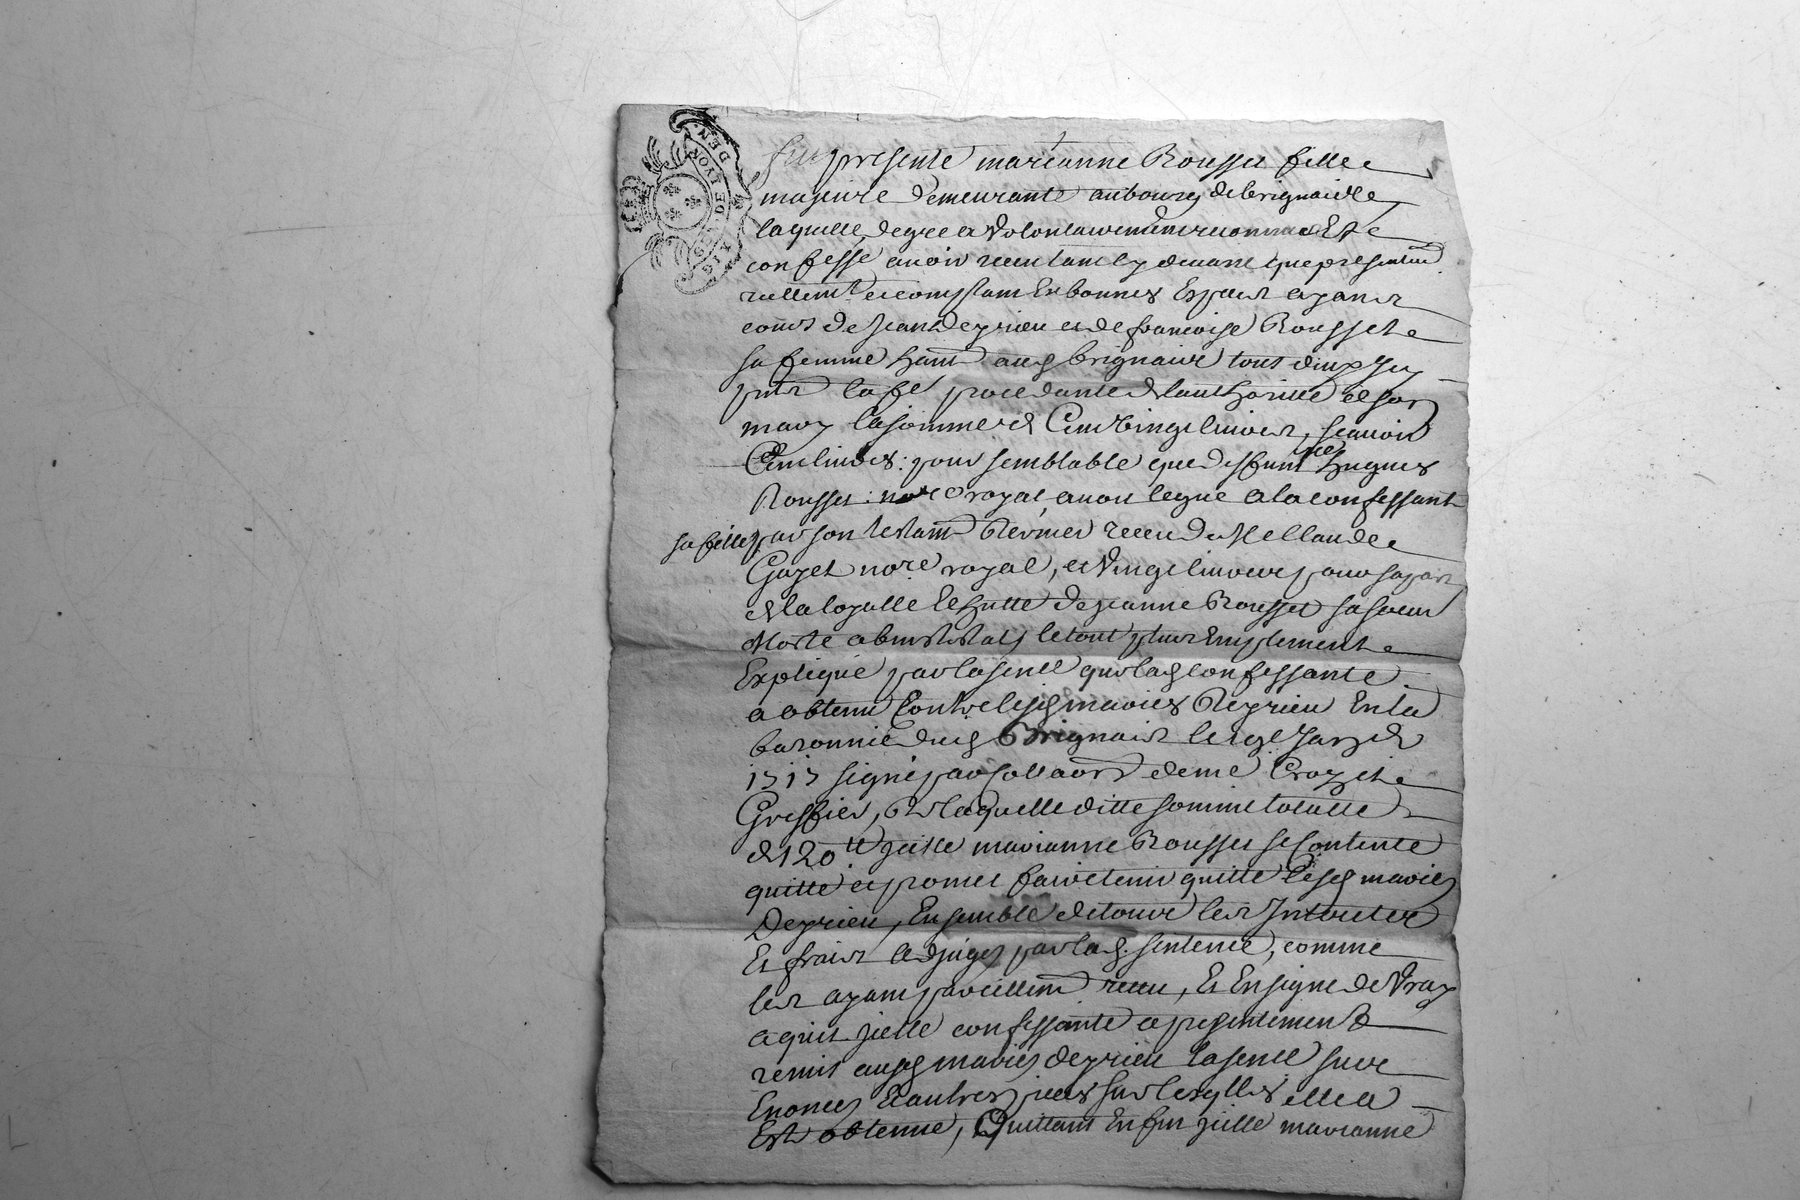 GEN. DE LYON
Fut presente marianne Rousset fille
majeure demeurante au bourg de brignais
laquelle de gre et volontairement reconnu Et
confesse avoir receu tant cy devant que presentem
reellemt et comptant En bonnes Espece ayant
cours de Jean deprieu et de francoise Rousset
sa femme hant aud brignais tous deux icy
pnts lad fe procedante de lauthoritté de son
mary la somme de Cent vingt livres, scavoir
Cent livres: pour semblable que deffunt me hugues
Rousset: nore royal avoit legué a la confessante
sa fille par son testamt dernier receu de Me Claude
Gayet nore royal, et vingt livres pour sa part
de la loyalle de Jeanne Rousset sa soeur
Morte ab intestat, le tout plus Emplement
Expliqué par la sence que lad confessante
a obtenu Contre lesd maries deprieu En la
baronnie dud Brignais le de
1717 signé par me Crozet
Greffier, De laquelle ditte somme totalle
de 120 tt icelle marianne Rousset se Contente
quitte et promet faire tenir quitte lesd maries
Deprieu, Ensemble de tous les Interets
Et frais adjugés par lad. sentence, comme
les ayant pareillemt receu, Et En signe de vray
aquit icelle confessante a presentement
remis ausd maries deprieu la sence sus
Enoncé Et autres pieces sur lesqlles elle a
Esté obtenue, Quittant En fin icelle marianne